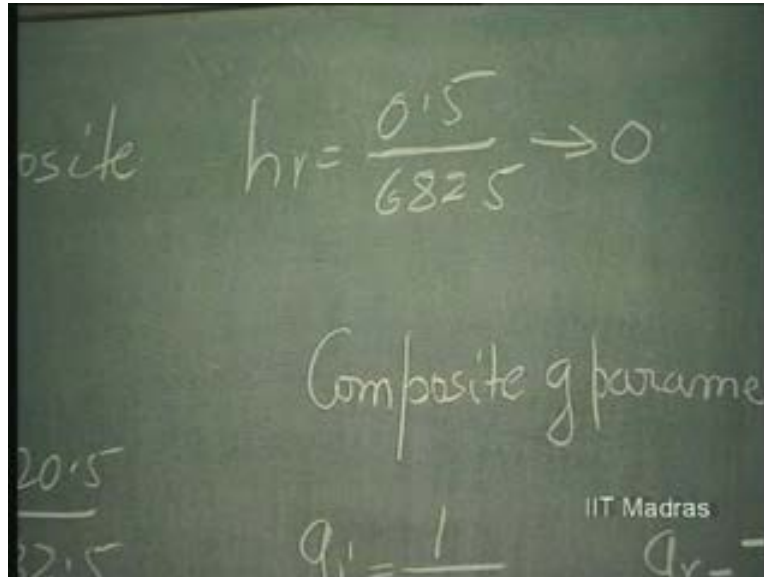 osite hr = 0.5 / 6825 → 0
Composite g parame
20.5
IIT Madras
gi = 1
gr =